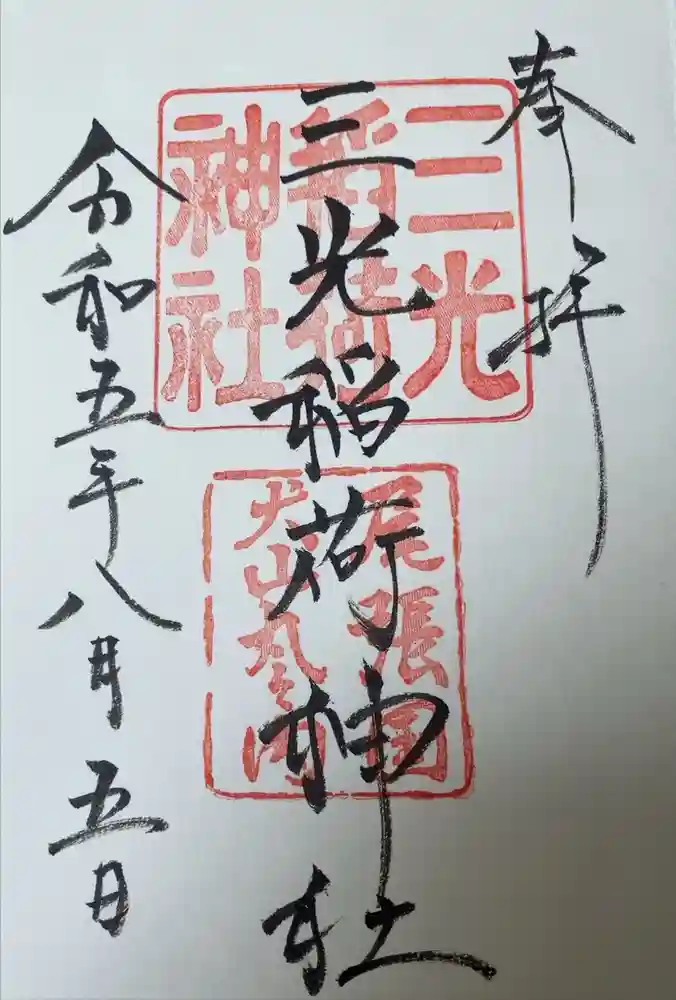 奉拝
三光稲荷神社
令和五年八月五日
三光
稲荷
神社
尾張国
犬山丸之内